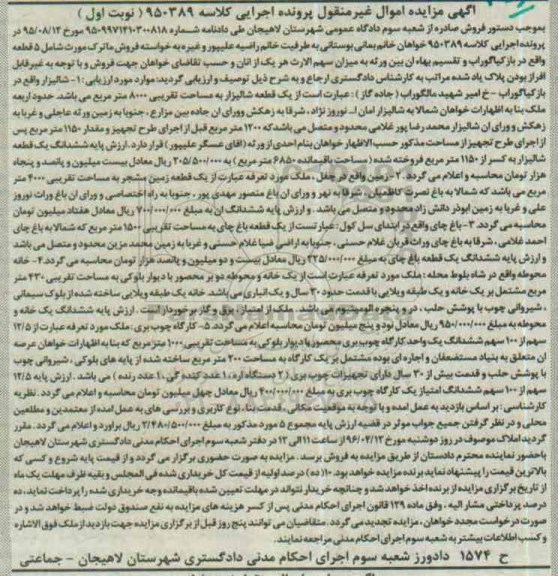 آگهی مزایده اموال غیرمنقول پرونده اجرایی کلاسه ۹۵۰۳۸۹ ( نوبت اول )
بموجب دستور فروش صادره از شعبه سوم دادگاه عمومی شهرستان لاهیجان طی دادنامه شماره ۹۵۰۹۹۷۱۴۱۰۳۰۰۸۱۸ مورخ ۹۵/۰۸/۱۲ در
پرونده اجرایی کلاسه ۹۵۰۳۸۹ خواهان خانم بمانی بوستانی به طرفیت خانم راضیه علیپور و غیره به خواسته فروش ماترک مورث شامل ۵ قطعه
واقع در بازکیاگوراب و تقسیم بهاء ان بین ورثه به میزان سهم الارث هر یک از انان و حسب تقاضای خواهان جهت فروش و با توجه به غیرقابل
افراز بودن پلاک یاد شده مراتب به کارشناس دادگستری ارجاع و به شرح ذیل توصیف و ارزیابی گردید: موارد مورد ارزیابی : ۱- شالیزار واقع در
بازکیاگوراب - خ امیر شهید مالگوراب (جاده گاز ) : عبارت است از یک قطعه شالیزار به مساحت تقریبی ۸۰۰۰ متر مربع می باشد. حدود اربعه
ملک بنا به اظهارات خواهان شمالا به شالیزار امان ا... نوروز نژاد ، شرقا به زهکش و ورای ان جاده بین مزارع ، جنوبا به زمین ورثه عاجلی و غربا به
زهکش و ورای ان شالیزار محمد رضا پور غلامی محدود و متصل می باشد که ۱۲۰۰ متر مربع قبل از اجرای طرح تجهیز و مقدار ۱۱۵۰ متر مربع پس
از اجرای طرح تجهیز از مساحت مذکور حسب الاظهار خواهان بنام احدی از ورثه (اقای عسگر علیپور ) قرار دارد. ارزش پایه ششدانگ یک قطعه
شالیزار به کسر از ۱۱۵۰ متر مربع فروخته شده ( مساحت باقیمانده ۶۸۵۰ متر مربع ) به ۲۰۵/۵۰۰/۰۰۰ ریال معادل بیست میلیون و پانصد و پنجاه
هزار تومان محاسبه و اعلام می گردد. ۲- زمین واقع در چفل ، ملک مورد تعرفه عبارت از یک قطعه زمین مشجر به مساحت تقریبی ۴۰۰۰ متر
مربع می باشد که شمالا به باغ نصرت کاظمیان ، شرقا به نهر و ورای ان باغ منصور مهدی پور ، جنوبا به راه اختصاصی و ورای ان باغ وراث نوروز
علی و غربا به زمین ابوذر دانش زاد محدود و متصل می باشد . و ارزش پایه ششدانگ ان به مبلغ ۷۰۰/۰۰۰/۰۰۰ ریال معادل هفتاد میلیون تومان
محاسبه می گردد. ۳- باغ چای واقع در ابتدای سل کول : عبارتست از یک قطعه باغ چای به مساحت تقریبی ۱۵۰۰ متر مربع که شمالا به باغ چای
احمد غلامی ، شرقا به باغ چای وراث قربان غلام حسنی ، جنوبا به اراضی ضیا غلام حسنی و غربا به زمین محمد مزین محدود و متصل می باشد
و ارزش پایه ششدانگ یک قطعه باغ چای به مبلغ ۲۲۵/۰۰۰/۰۰۰ ریال معادل بیست و دو میلیون و پانصد هزار تومان محاسبه می گردد. ۴- خانه
محوطه واقع در شاه بلوط محله : ملک مورد تعرفه عبارت است از یک خانه و محوطه دور بر محصور با دیوار بلوکی به مساحت تقریبی ۴۳۰ متر
مربع مشتمل بر یک خانه و یک طبقه ویلایی با قدمت حدود ۳۰ سال و یک انباری می باشد. خانه یک طبقه ویلایی ساخته شده از بلوک سیمانی
، شیروانی چوب با پوشش حلب ، در و پنجره المینیومی می باشد. ملک از امتیاز، برق و گاز برخوردار است . ارزش پایه ششدانگ یک خانه و
محوطه به مبلغ ۹۵۰/۰۰۰/۰۰۰ ریال معادل نود و پنج میلیون تومان محاسبه اعلام می گردد. ۵- کارگاه چوب بری : ملک مورد تعرفه عبارت از ۱۲/۵
سهم از ۱۰۰ سهم ششدانگ یک واحد کارگاه چوب بری محصور با دیوار بلوکی به مساحت تقریبی ۱۰۰۰ متر مربع که بنا به اظهارات خواهان عرصه
ان متعلق به بنیاد مستضعفان و اجاره ای بوده مشتمل بر یک کارگاه به مساحت ۲۰۰ متر مربع ساخته شده از پایه های بلوکی ، شیروانی چوب
با پوشش حلب و قدمت بیش از ۳۰ سال دارای تجهیزات چوب بری ( ۲ دستگاه اره ، ۱ عدد کنده گی ، ۱ عدد رنده ) می باشد . ارزش پایه ۱۲/۵
سهم از ۱۰۰ سهم ششدانگ امتیاز یک کارگاه چوب بری به مبلغ ۴۰۰/۰۰۰/۰۰۰ ریال معادل چهل میلیون تومان محاسبه و اعلام می گردد . نظریه
کارشناسی : بر اساس بازدید به عمل امده و با توجه به موقعیت مکانی ، قدمت بنا، نوع کاربری و بررسی های به عمل امده از معتمدین و مطلعین
محلی و در نظر گرفتن جمیع جوانب موثر در قضیه ارزش پایه مجموع ۵ مورد مذکور به مبلغ ۲/۴۸۰/۵۰۰/۰۰۰ ریال براورد و اعلام می گردد. مقرر
گردید املاک موصوف در روز دوشنبه مورخ ۹۶/۰۴/۱۲ از ساعت ۱۱ الی ۱۲ در دفتر شعبه سوم اجرای احکام مدنی دادگستری شهرستان لاهیجان
با حضور نماینده محترم دادستان از طریق مزایده به فروش برسد . مزایده به صورت حضوری برگزار می گردد و از قیمت پایه شروع و کسی که
بالاترین قیمت را پیشنهاد نماید برنده مزایده خواهد بود. ۱۰ (ده ) درصد اولیه از قیمت کل خریداری شده فی المجلس و بقیه ظرف مهلت یک ماه
از تاریخ برگزاری مزایده از برنده اخذ خواهد شد و چنانچه خریدار نتواند در مهلت تعیین شده باقیمانده وجه خریداری شده را پرداخت نماید، ده
درصد پرداختی مشار الیه ، وفق ماده ۱۲۹ قانون اجرای احکام مدنی پس از کسر هزینه های مزایده به نفع صندوق دولت ضبط خواهد شد و در
صورت درخواست مجدد خواهان ، مزایده تجدید می گردد. متقاضیان می توانند پنج روز قبل از برگزاری مزایده جهت بازدید از ملک فوق الاشاره
و کسب اطلاعات بیشتر به شعبه سوم اجرای احکام مدنی مراجعه نمایند.
ح ۱۵۷۴ دادورز شعبه سوم اجرای احکام مدنی دادگستری شهرستان لاهیجان – جماعتی